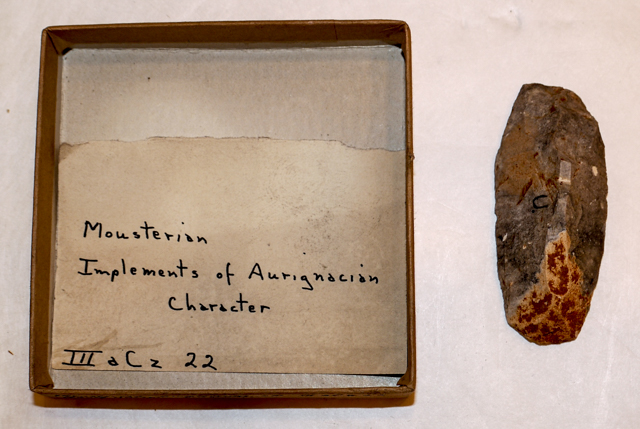 Mousterian
Implements of Aurignacian
Character
III a C z 22
C